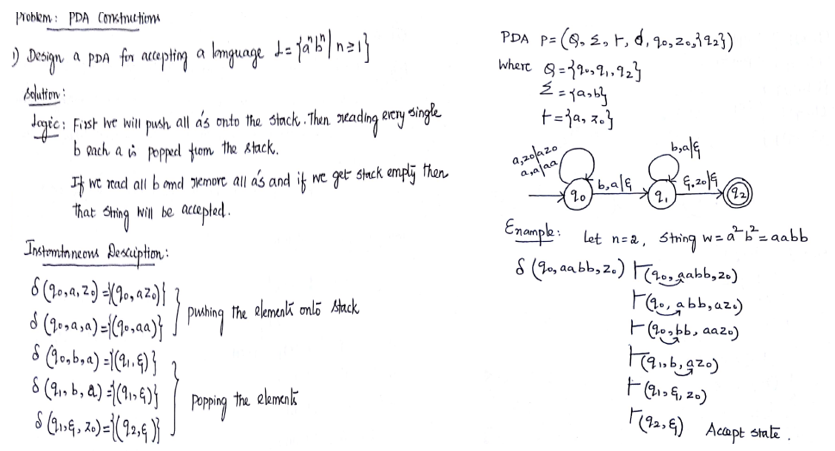 Problem: PDA Constructions
1) Design a PDA for accepting a language L = {aⁿbⁿ | n≥1}
Solution:
Logic: First we will push all a's onto the stack. Then reading every single
b each a is popped from the stack.
If we read all b and remove all a's and if we get stack empty then
that string will be accepted.
Instantaneous Description:
δ(q₀,a,z₀)={(q₀,az₀)}
δ(q₀,a,a)={(q₀,aa)}
pushing the elements onto stack
δ(q₀,b,a)={(q₁,ε)}
δ(q₁,b,a)={(q₁,ε)}
δ(q₁,ε,z₀)={(q₂,ε)}
popping the elements
PDA P=(Q,Σ,Γ,δ,q₀,z₀,{q₂})
where Q={q₀,q₁,q₂}
Σ={a,b}
Γ={a,z₀}
a,z₀/az₀
a,a/aa
b,a/ε
q₀
b,a/ε
q₁
ε,z₀/ε
q₂
Example: Let n=2, string w=a²b²=aabb
δ(q₀,aabb,z₀) ⊢(q₀,aabb,z₀)
⊢(q₀,abb,az₀)
⊢(q₀,bb,aaz₀)
⊢(q₁,b,az₀)
⊢(q₁,ε,z₀)
⊢(q₂,ε) Accept state.